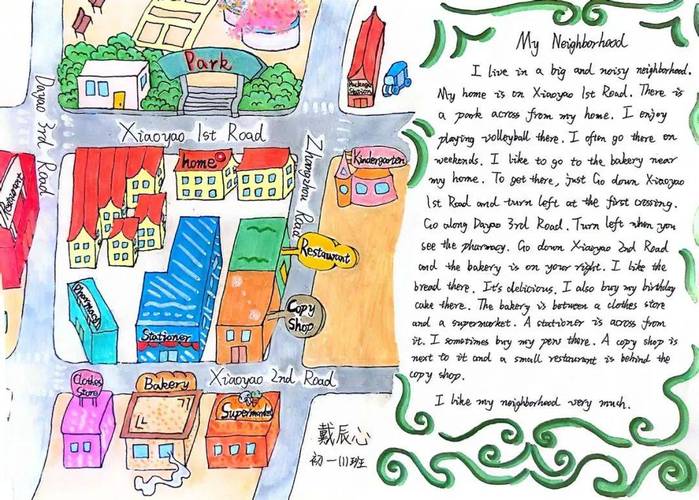 Park
Dayao 3rd Road
Xiaoyao 1st Road
Zhongshan Road
home
Kindergarten
Restaurant
Pharmacy
Stationer
Copy
Shop
Clothes
Store
Bakery
Xiaoyao 2nd Road
Supermarket
戴辰心
初一(1)班
My Neighborhood
I live in a big and noisy neighborhood.
My home is on Xiaoyao 1st Road. There is
a park across from my home. I enjoy
playing volleyball there. I often go there on
weekends. I like to go to the bakery near
my home. To get there, just Go down Xiaoyao
1st Road and turn left at the first crossing.
Go along Dayao 3rd Road. Turn left when you
see the pharmacy. Go down Xiaoyao 2nd Road
and the bakery is on your right. I like the
bread there. It's delicious. I also buy my birthday
cake there. The bakery is between a clothes store
and a supermarket. A stationer is across from
it. I sometimes buy my pens there. A copy shop is
next to it and a small restaurant is behind the
copy shop.
I like my neighborhood very much.